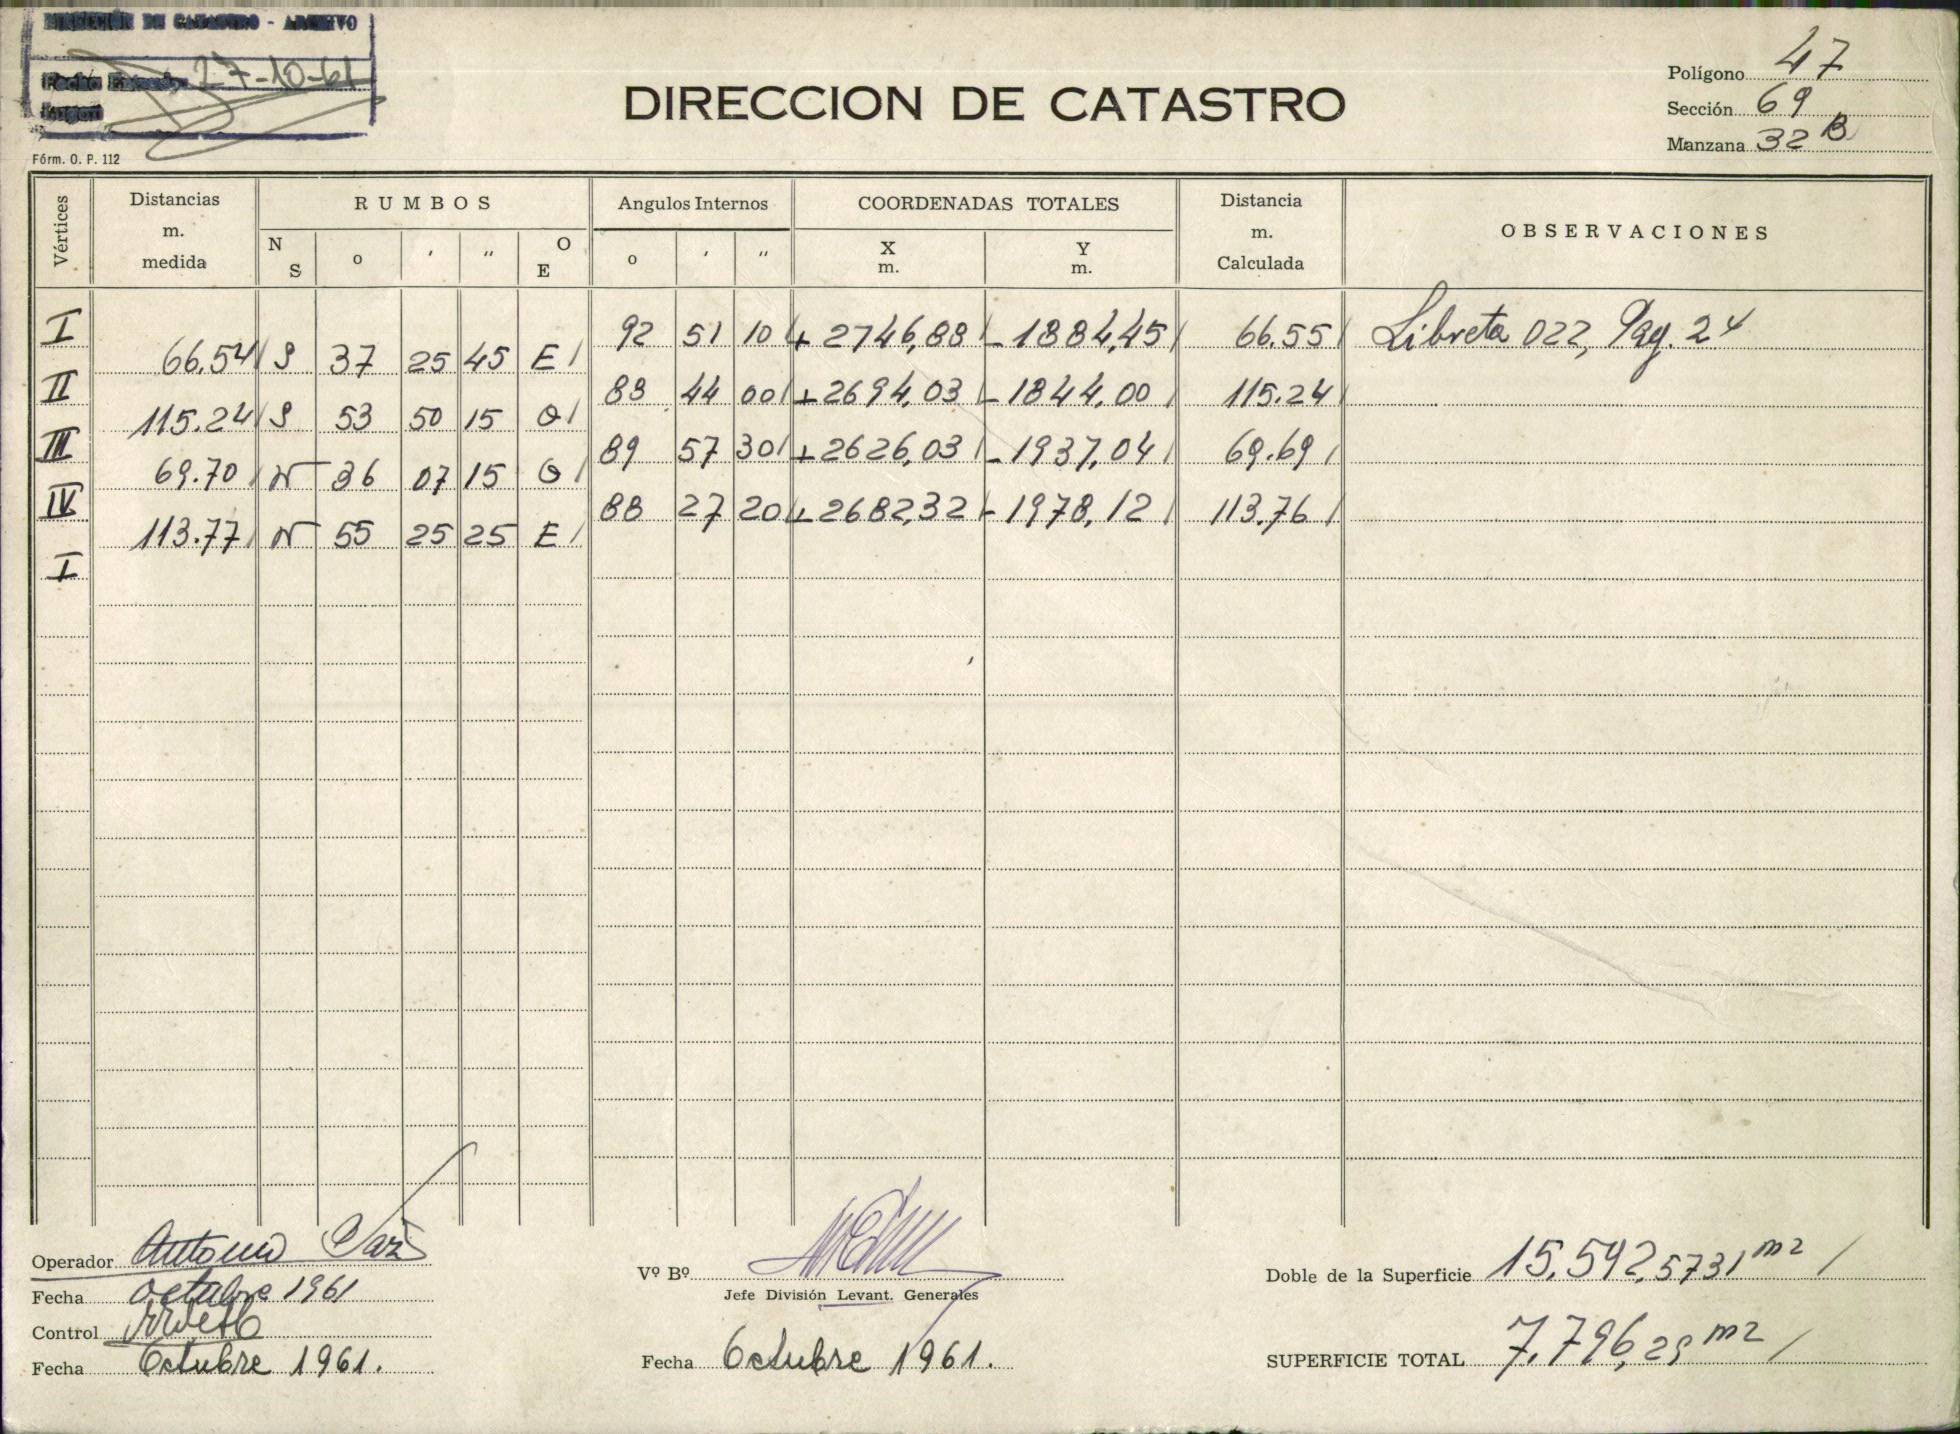 DIRECCIÓN DE CATASTRO - ARCHIVO
27-10-61
Fórm. O. P. 112
DIRECCION DE CATASTRO
Polígono 47
Sección 69
Manzana 32 B
Vértices
Distancias m. medida
RUMBOS
N S o ' " O E
Angulos Internos
o ' "
COORDENADAS TOTALES
X m. Y m.
Distancia m. Calculada
OBSERVACIONES
I 92 51 10 + 2746,88 - 1884,45 66.55 Libreta 022, Pag. 24
66.54 S 37 25 45 E
II 88 44 00 + 2694,03 - 1844,00 115.24
115.24 S 53 50 15 O
III 89 57 30 + 2626,03 - 1937,04 69.69
69.70 N 36 07 15 O
IV 88 27 20 + 2682,32 - 1978,12 113.76
113.77 N 55 25 25 E
I
Operador Antonio
Fecha octubre 1961
Control
Fecha Octubre 1961.
Vº Bº
Jefe División Levant. Generales
Fecha Octubre 1961.
Doble de la Superficie 15.592,5731 m2
SUPERFICIE TOTAL 7.796,29 m2